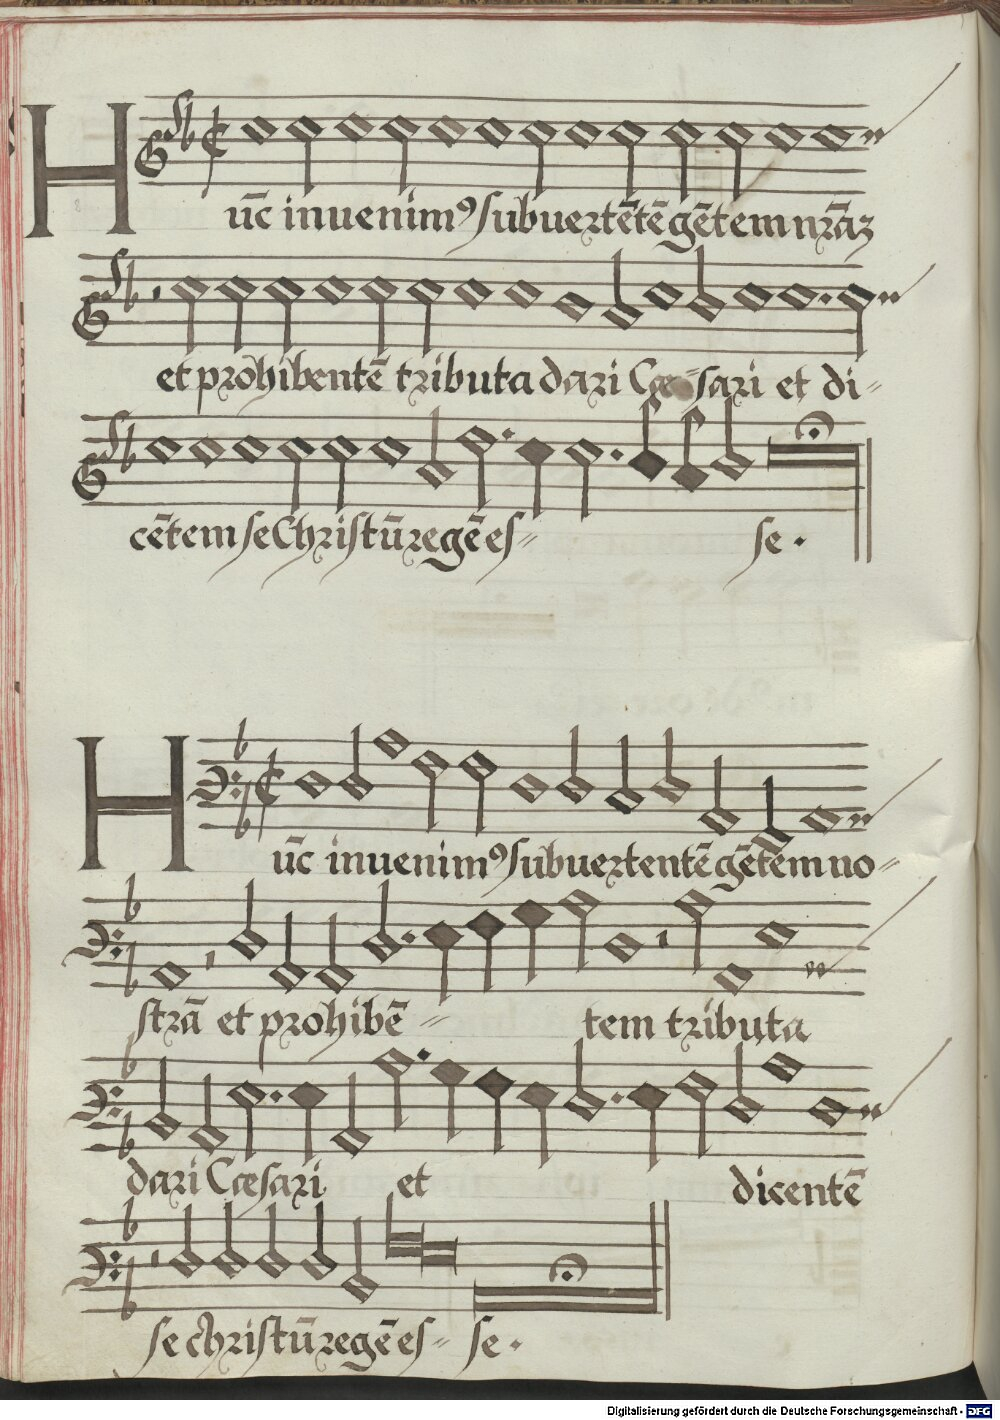 Hūc inuenimꝰ subuertētē gētem nr̄āz
et prohibentē tributa dari Cæsari et di-
cētem se Christū regē es- se.
Hūc inuenimꝰ subuertentē gētem no-
strā et prohibē- tem tributa
dari Cæsari et dicentē
se christū regē es- se.
Digitalisierung gefördert durch die Deutsche Forschungsgemeinschaft - DFG